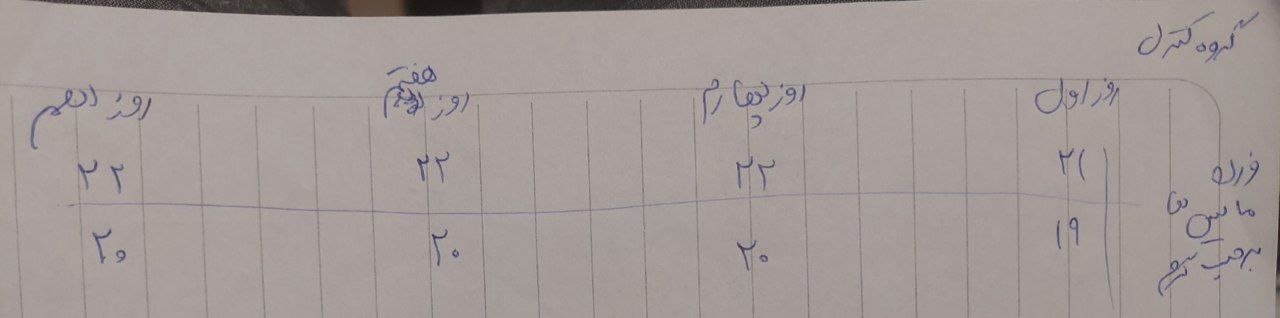 گروه کنترل
روز اول روز چهارم روز هفتم روز دهم
وزن ۲۱ ۲۲ ۲۲ ۲۲
ماس ها
برحسب گرم ۱۹ ۲۰ ۲۰ ۲۰